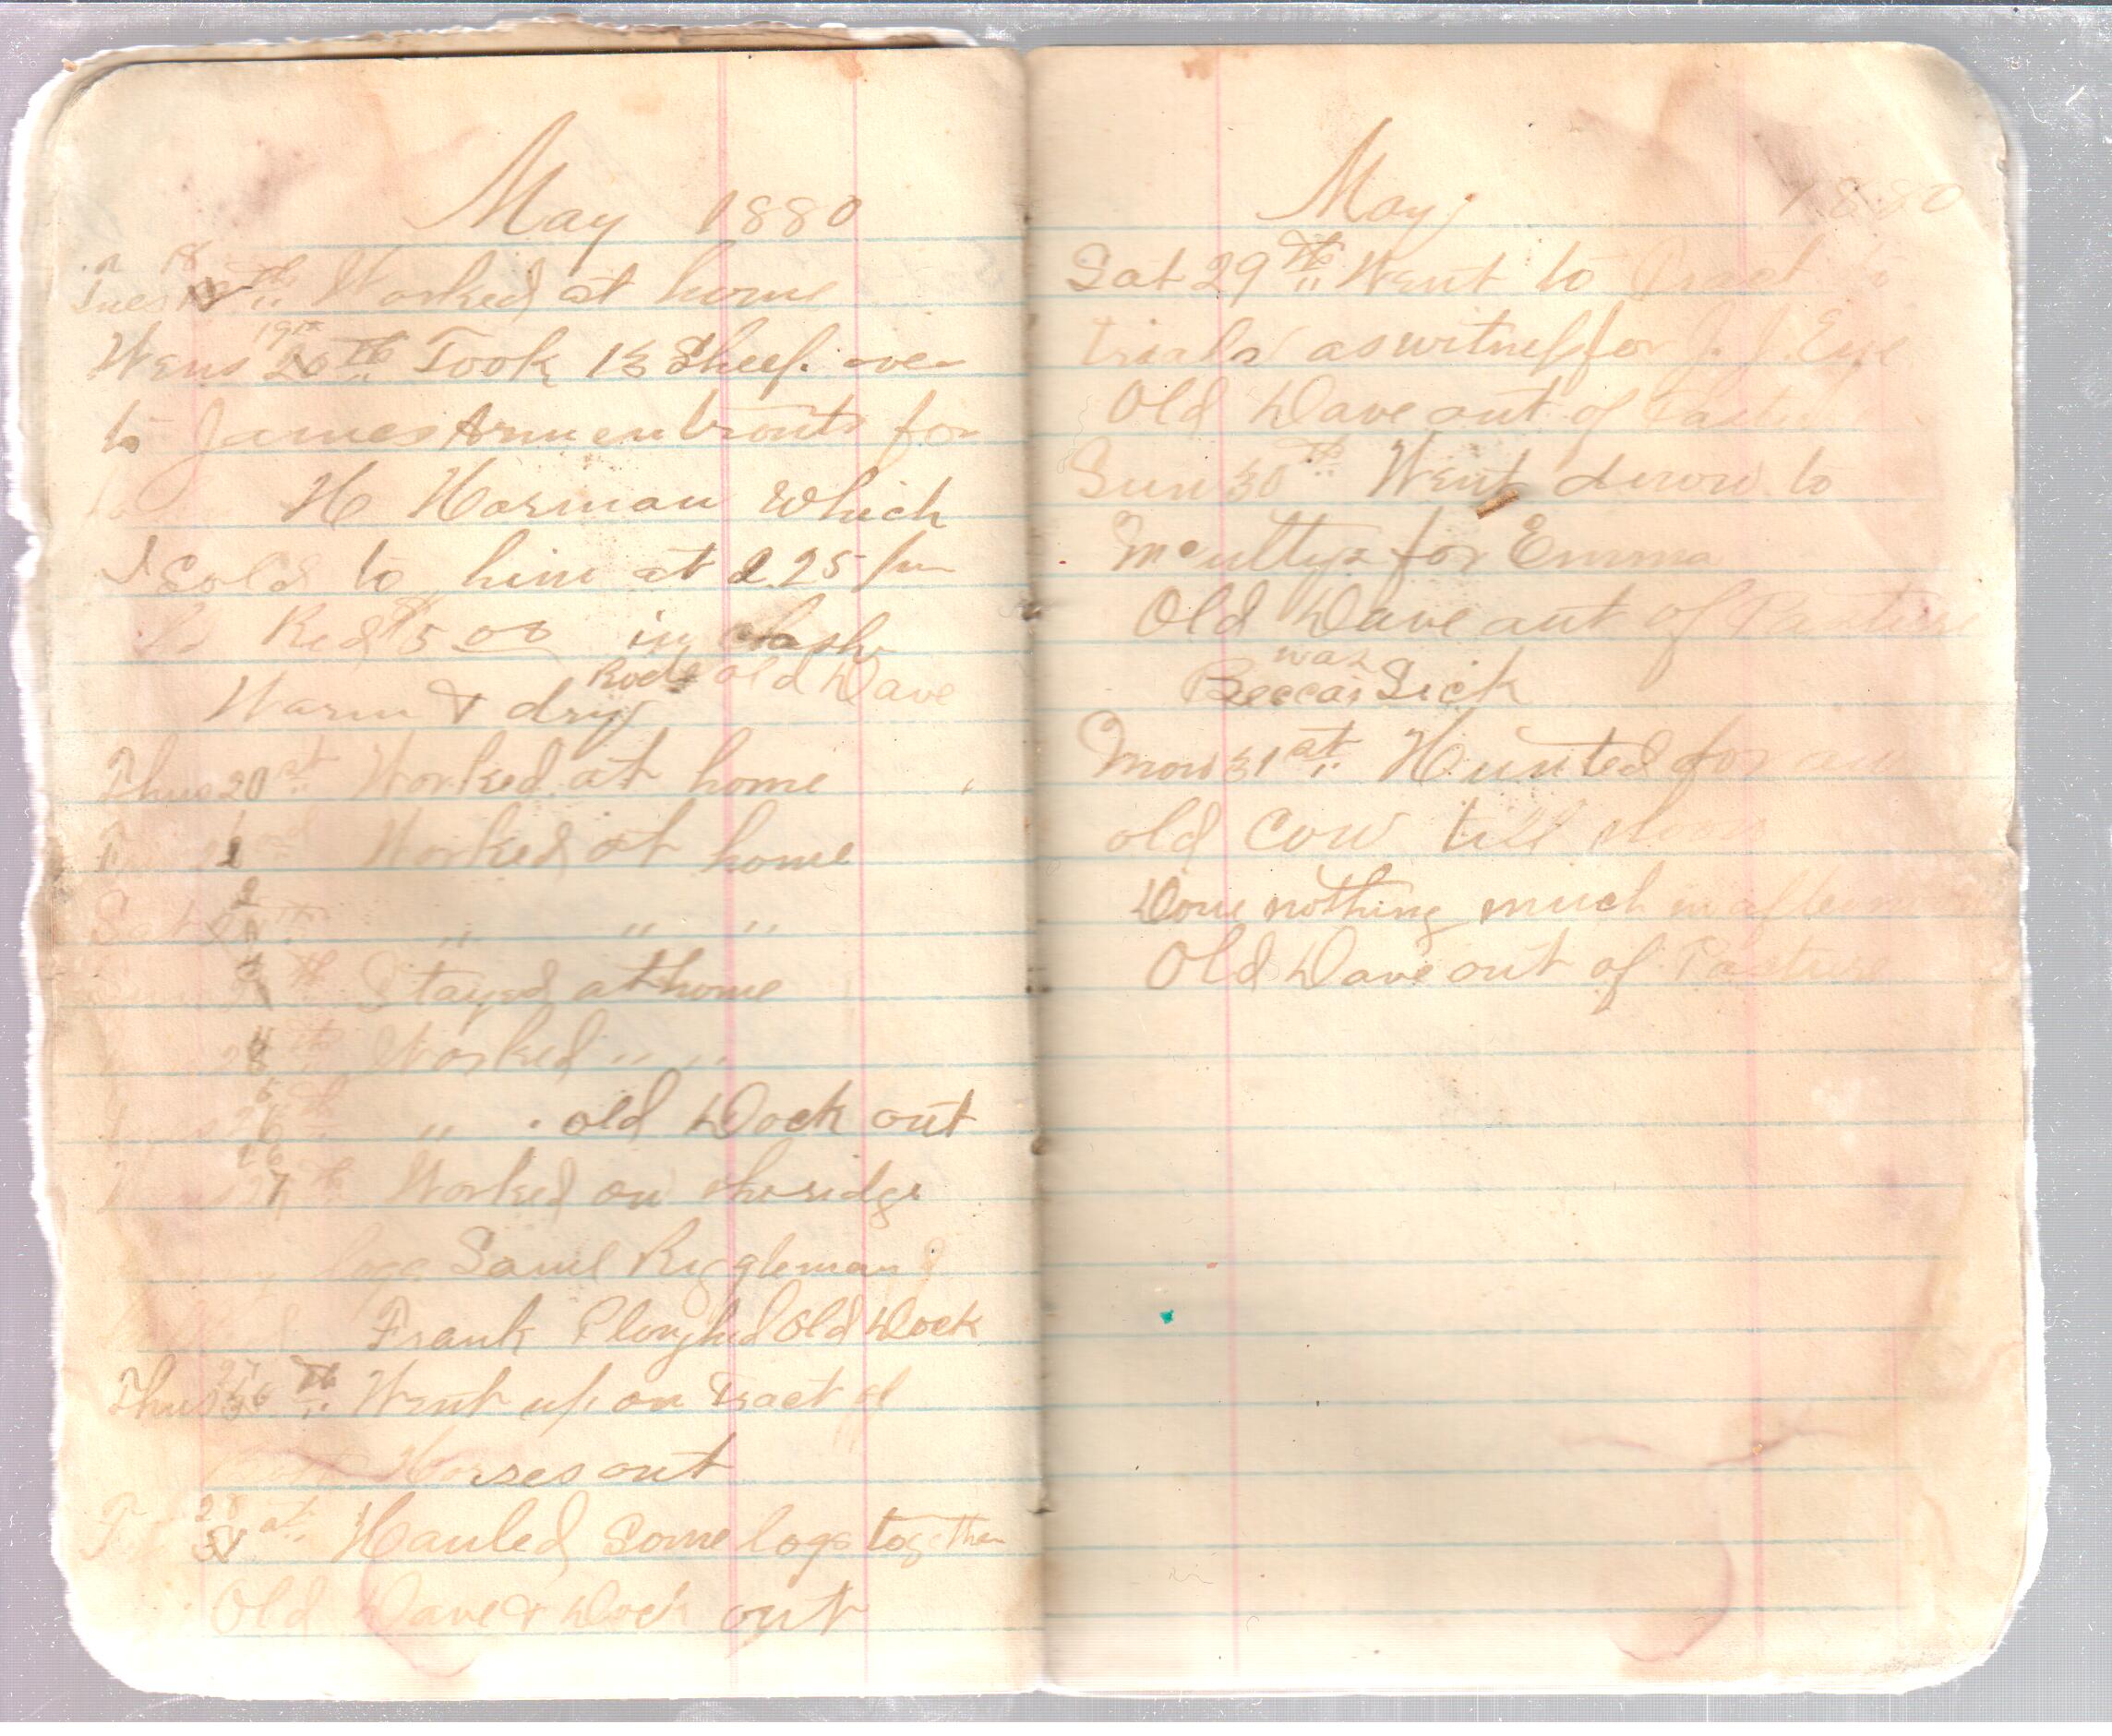 May 1880
Tues 18 th Worked at home
Wens 19th 20th Took 13 Sheep over
to James Armentrouts for
H Harman which
I Sold to him at 2.25 per
Recd $5 00 in cash
Rode old Dave
Warm & dry
Thus 20 st Worked at home
1 Worked at home
Sat 2 th " " "
3 th Stayed at home
24 th Worked " "
5 th " old Dock out
26 27 th Worked on the ridge
logs Saml Riggleman
Frank Ploughed Old Dock
Thus 27 th Went up on Tract
Both Horses out
28 31 st Hauled Some logs together
Old Dave & Dock out
May 1880
Sat 29 th Went to Tract to
trials as witness for J. J. Eye
Old Dave out of Pasture
Sun 30 th Went down to
McUltys for Emma
Old Dave out of Pasture
was
Becca Sick
Mon 31 st Hunted for an
old Cow till noon
Done nothing much in afternoon
Old Dave out of Pasture